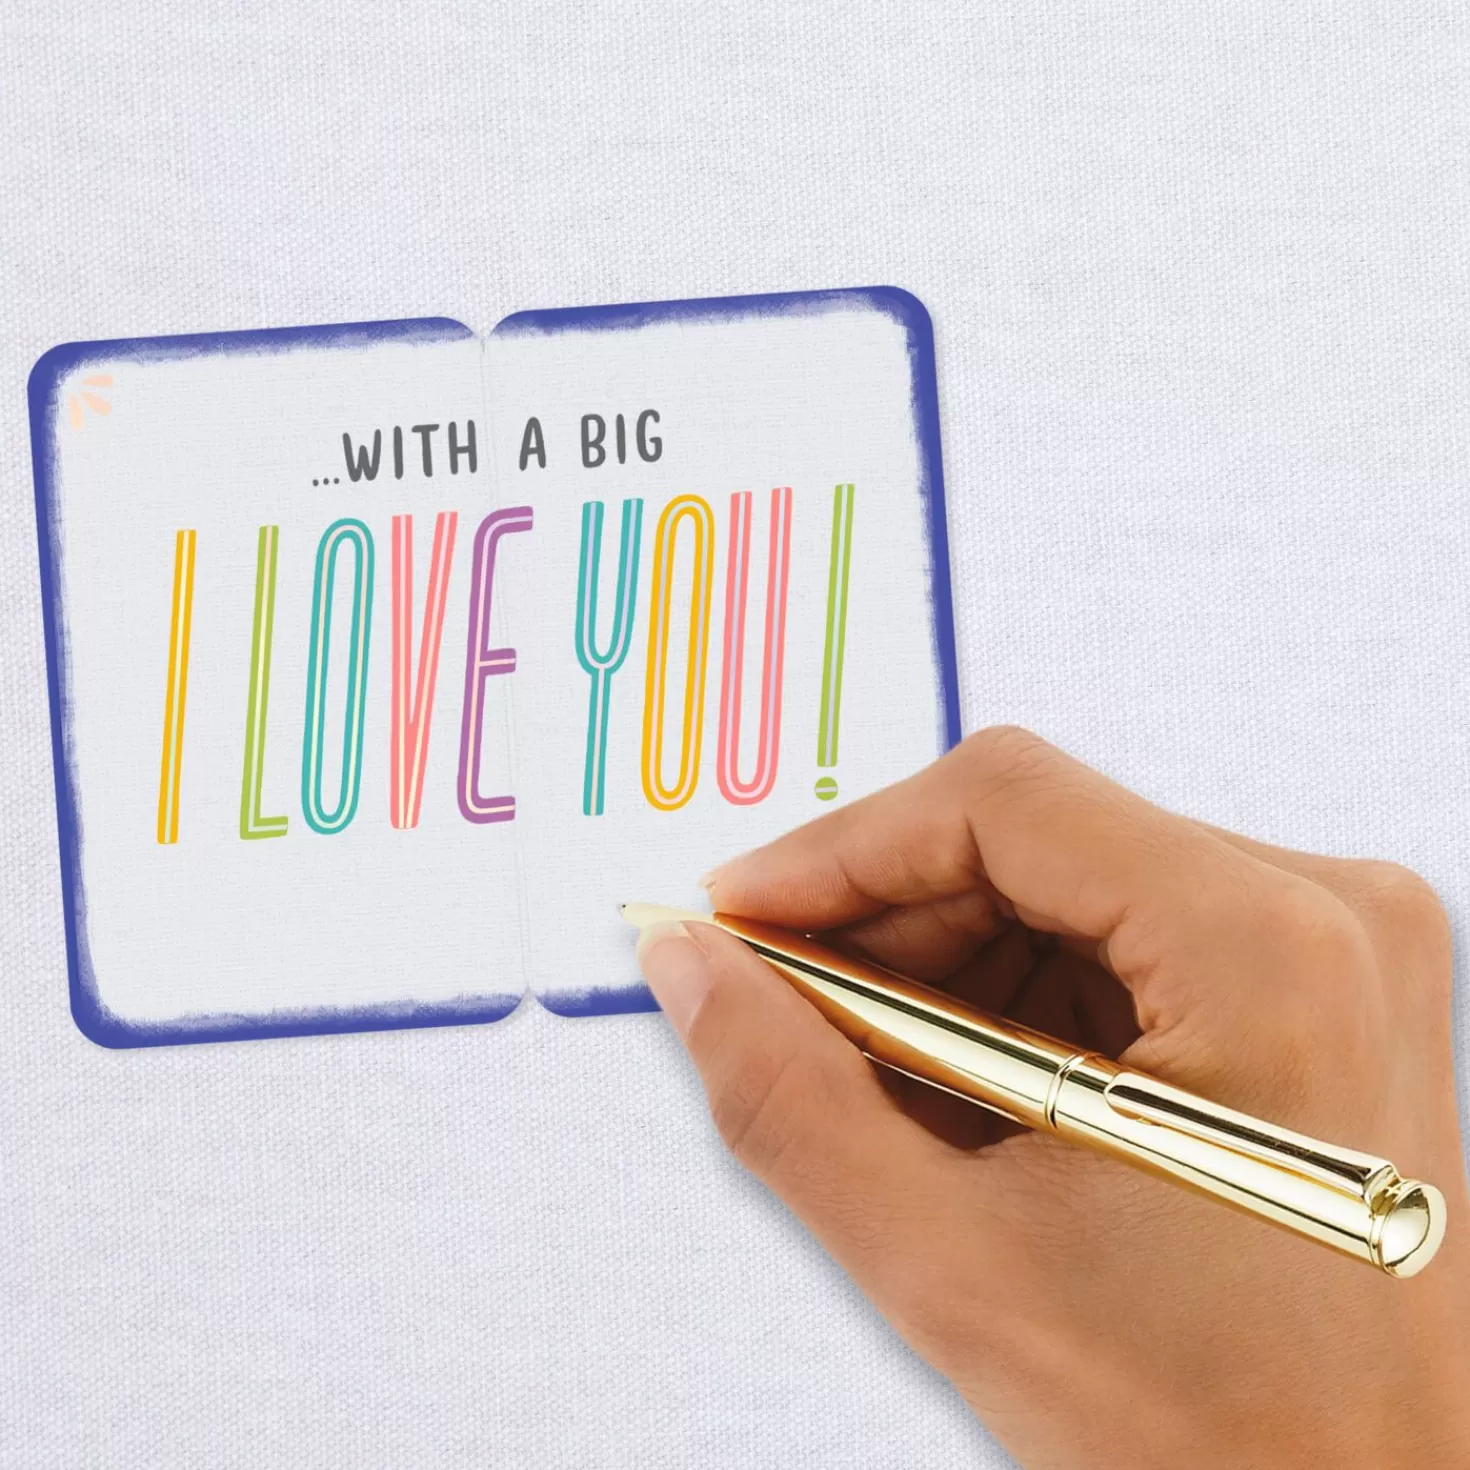 ...WITH A BIG
I LOVE YOU!